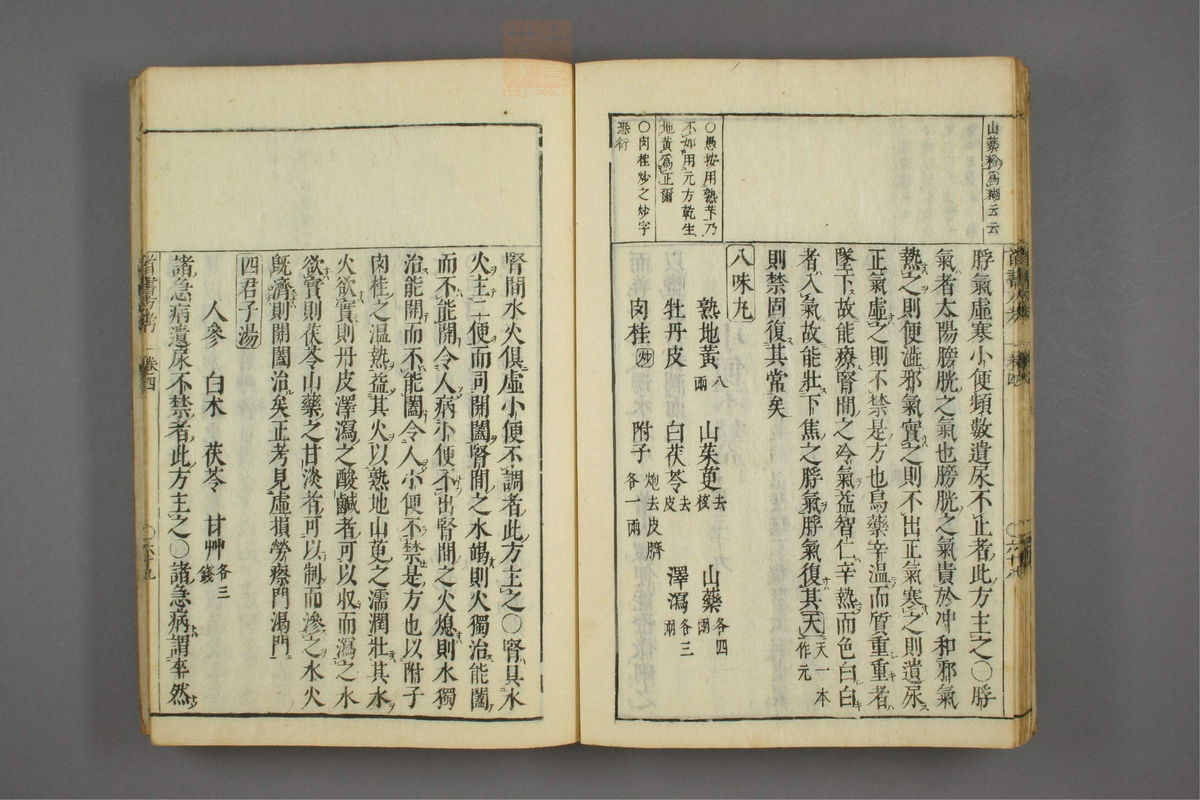 山藥粉爲糊云云
脬氣虛寒小便頻數遺尿不止者此方主之〇脬
氣者太陽膀胱之氣也膀胱之氣貴於冲和邪氣
熱之則便澁邪氣實之則不出正氣寒之則遺尿
正氣虛之則不禁是方也烏藥辛温而質重重者
墜下故能療腎間之冷氣益智仁辛熱而色白白
者入氣故能壯下焦之脬氣脬氣復其天天一本作元
則禁固復其常矣
〇愚按用熟苄乃
不如用元方乾生
地黄爲正爾
〇肉桂炒之炒字
恐衍
八味丸
熟地黄八兩 山茱萸去核 山藥各四兩
牡丹皮 白茯苓去皮 澤瀉各三兩
肉桂炒 附子炮去皮臍各一兩
腎間水火俱虛小便不調者此方主之〇腎具水
火主二便而司開闔腎間之水竭則火獨治能闔
而不能開令人病小便不出腎間之火熄則水獨
治能開而不能闔令人小便不禁是方也以附子
肉桂之温熱益其火以熟地山萸之濡潤壯其水
火欲實則丹皮澤瀉之酸鹹者可以収而瀉之水
欲實則茯苓山藥之甘淡者可以制而滲之水火
既濟則開闔治矣正考見虛損勞瘵門渴門
四君子湯
人參 白朮 茯苓 甘艸各三錢
諸急病遺尿不禁者此方主之〇諸急病謂卒然
卷四